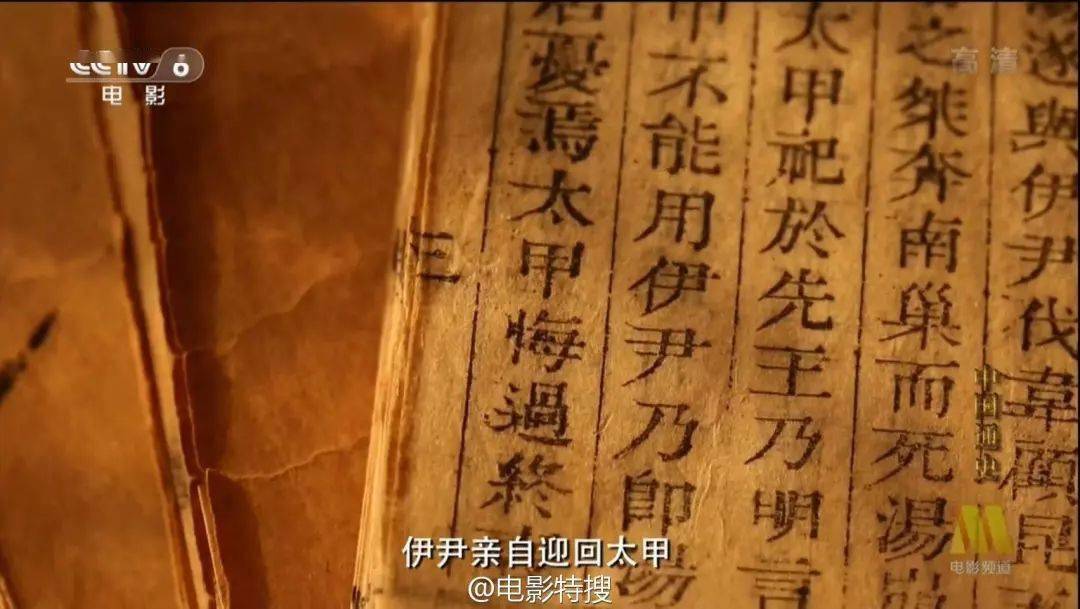 CCTV 6
电影
高清
遂與伊尹伐韋顧昆
之桀奔南巢而死湯
太甲祀於先王乃明言
甲不能用伊尹乃即湯
居憂焉太甲悔過終
三
中国通史
电影频道
伊尹亲自迎回太甲
@电影特搜